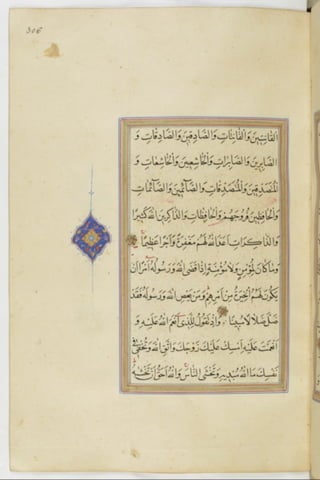 306
القانِتِينَ وَالقَانِتَاتِ وَالصَّادِقِينَ وَالصَّادِقَاتِ وَ
الصَّابِرِينَ وَالصَّابِرَاتِ وَالْخَاشِعِينَ وَالْخَاشِعَاتِ وَ
المُتَصَدِّقِينَ وَالْمُتَصَدِّقَاتِ وَالصَّآئِمِينَ وَالصَّآئِمَاتِ
وَالْحَافِظِينَ فُرُوجَهُمْ وَالْحَافِظَاتِ وَالذَّاكِرِينَ اللهَ كَثِيرًا
وَالذَّاكِرَاتِ أَعَدَّ اللهُ لَهُمْ مَغْفِرَةً وَأَجْرًا عَظِيمًا
وَمَا كَانَ لِمُؤْمِنٍ وَلَا مُؤْمِنَةٍ إِذَا قَضَى اللهُ وَرَسُولُهُ أَمْرًا أَنْ
يَكُونَ لَهُمُ الْخِيَرَةُ مِنْ أَمْرِهِمْ وَمَنْ يَعْصِ اللهَ وَرَسُولَهُ فَقَدْ
ضَلَّ ضَلَالًا مُبِينًا وَإِذْ تَقُولُ لِلَّذِي أَنْعَمَ اللهُ عَلَيْهِ وَ
أَنْعَمْتَ عَلَيْهِ أَمْسِكْ عَلَيْكَ زَوْجَكَ وَاتَّقِ اللهَ وَتُخْفِي فِي
نَفْسِكَ مَا اللهُ مُبْدِيهِ وَتَخْشَى النَّاسَ وَاللهُ أَحَقُّ أَنْ تَخْشَاهُ